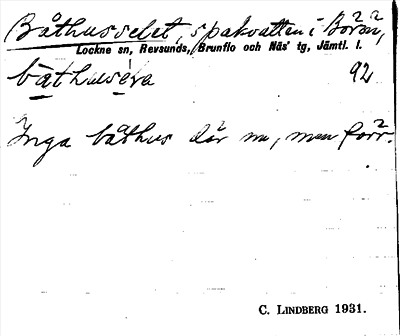 Båthusselet, spakvatten i Börån,
Lockne sn, Revsunds, Brunflo och Näs' tg, Jämtl. l.
båthuséra 92
Inga båthus där nu, men förr.
C. LINDBERG 1931.